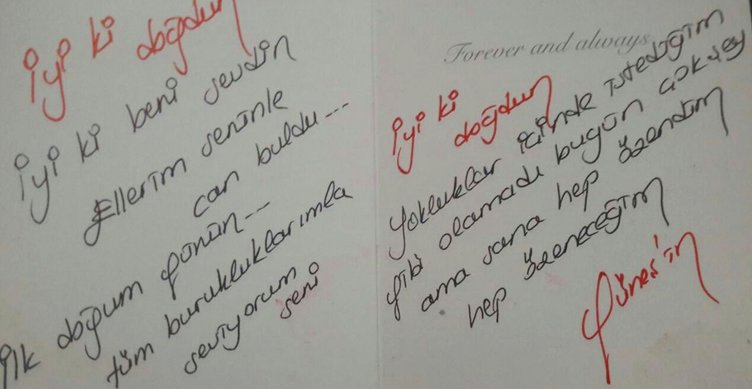 İyi ki doğdun
İyi ki beni sevdin
Ellerim seninle
can buldu...
ilk doğum günün...
tüm burukluklarımla
seviyorum
seni
Forever and always
iyi ki
doğdun
Yokluklar içinde istediğim
gibi olamadı bugün çok şey
ama sana hep özendim
hep özeneceğim
Güneş'in